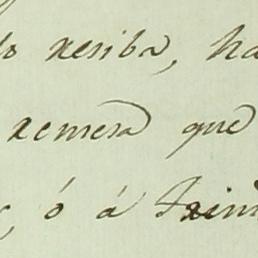 do reciba, ha
remesa que
ó á Trini